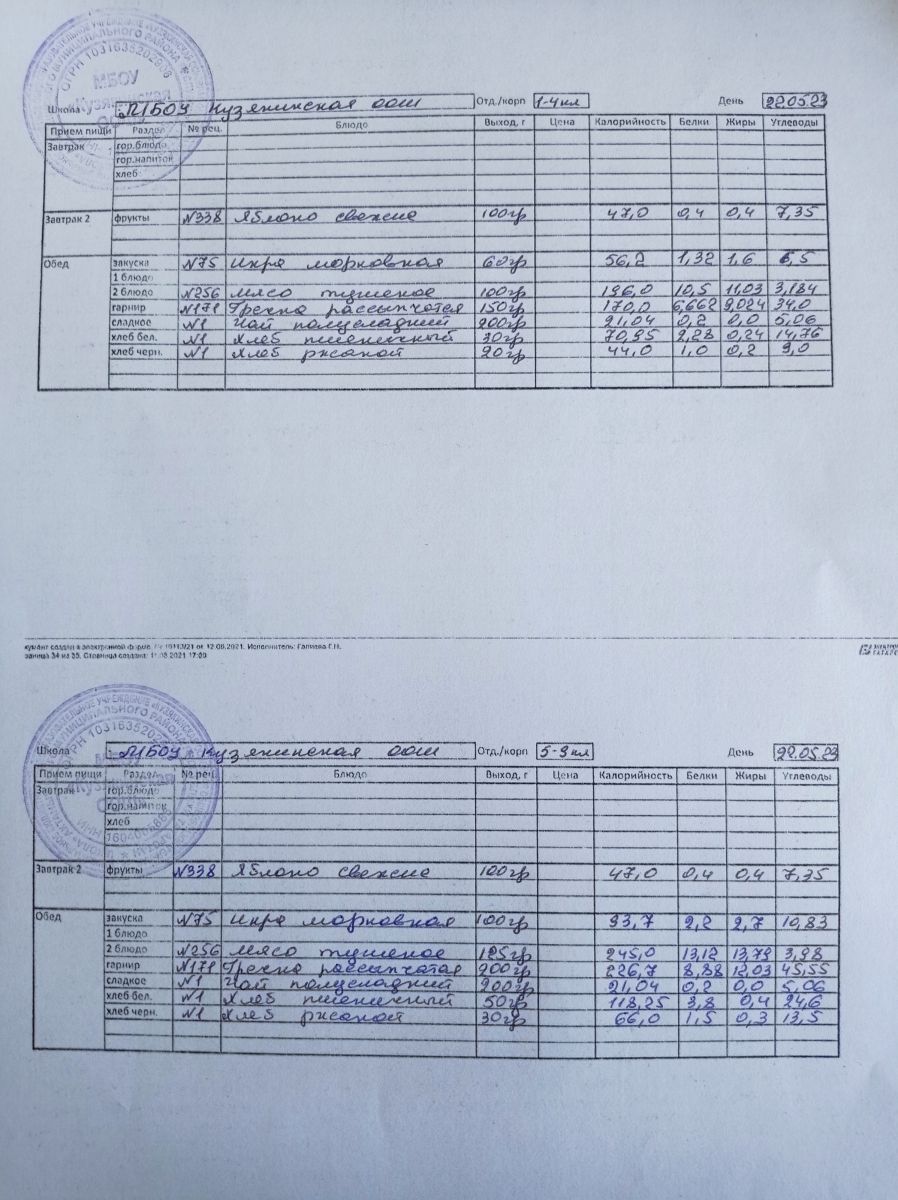 МБОУ
Школа МБОУ Кузякинская ООШ Отд./корп 1-4 кл День 22.05.23
Прием пищи Раздел № рец. Блюдо Выход, г Цена Калорийность Белки Жиры Углеводы
Завтрак гор.блюдо
гор.напиток
хлеб
Завтрак 2 фрукты №338 Яблоко свежие 100гр 47,0 0,4 0,4 7,35
Обед закуска №75 Икра морковная 60гр 56,2 1,32 1,6 6,5
1 блюдо
2 блюдо №256 Мясо тушеное 100гр 196,0 10,5 11,03 3,184
гарнир №171 Гречка рассыпчатая 150гр 170,0 6,662 9,024 34,0
сладкое №1 Чай полусладкий 200гр 21,04 0,2 0,0 5,06
хлеб бел. №1 Хлеб пшеничный 30гр 70,95 2,28 0,24 14,76
хлеб черн. №1 Хлеб ржаной 20гр 44,0 1,0 0,2 9,0
создан в электронной форме. 12.08.2021. Исполнитель: Галиева Г.Н.
34 из 35. Страница создана: 11.08.2021 17:00
Школа МБОУ Кузякинская ООШ Отд./корп 5-9 кл День 22.05.23
Прием пищи Раздел № рец. Блюдо Выход, г Цена Калорийность Белки Жиры Углеводы
Завтрак гор.блюдо
гор.напиток
хлеб
Завтрак 2 фрукты №338 Яблоко свежие 100гр 47,0 0,4 0,4 7,35
Обед закуска №75 Икра морковная 100гр 93,7 2,2 2,7 10,83
1 блюдо
2 блюдо №256 Мясо тушеное 125гр 245,0 13,12 13,79 3,98
гарнир №171 Гречка рассыпчатая 200гр 226,7 8,88 12,03 45,55
сладкое №1 Чай полусладкий 200гр 21,04 0,2 0,0 5,06
хлеб бел. №1 Хлеб пшеничный 50гр 118,25 3,8 0,4 24,6
хлеб черн. №1 Хлеб ржаной 30гр 66,0 1,5 0,3 13,5